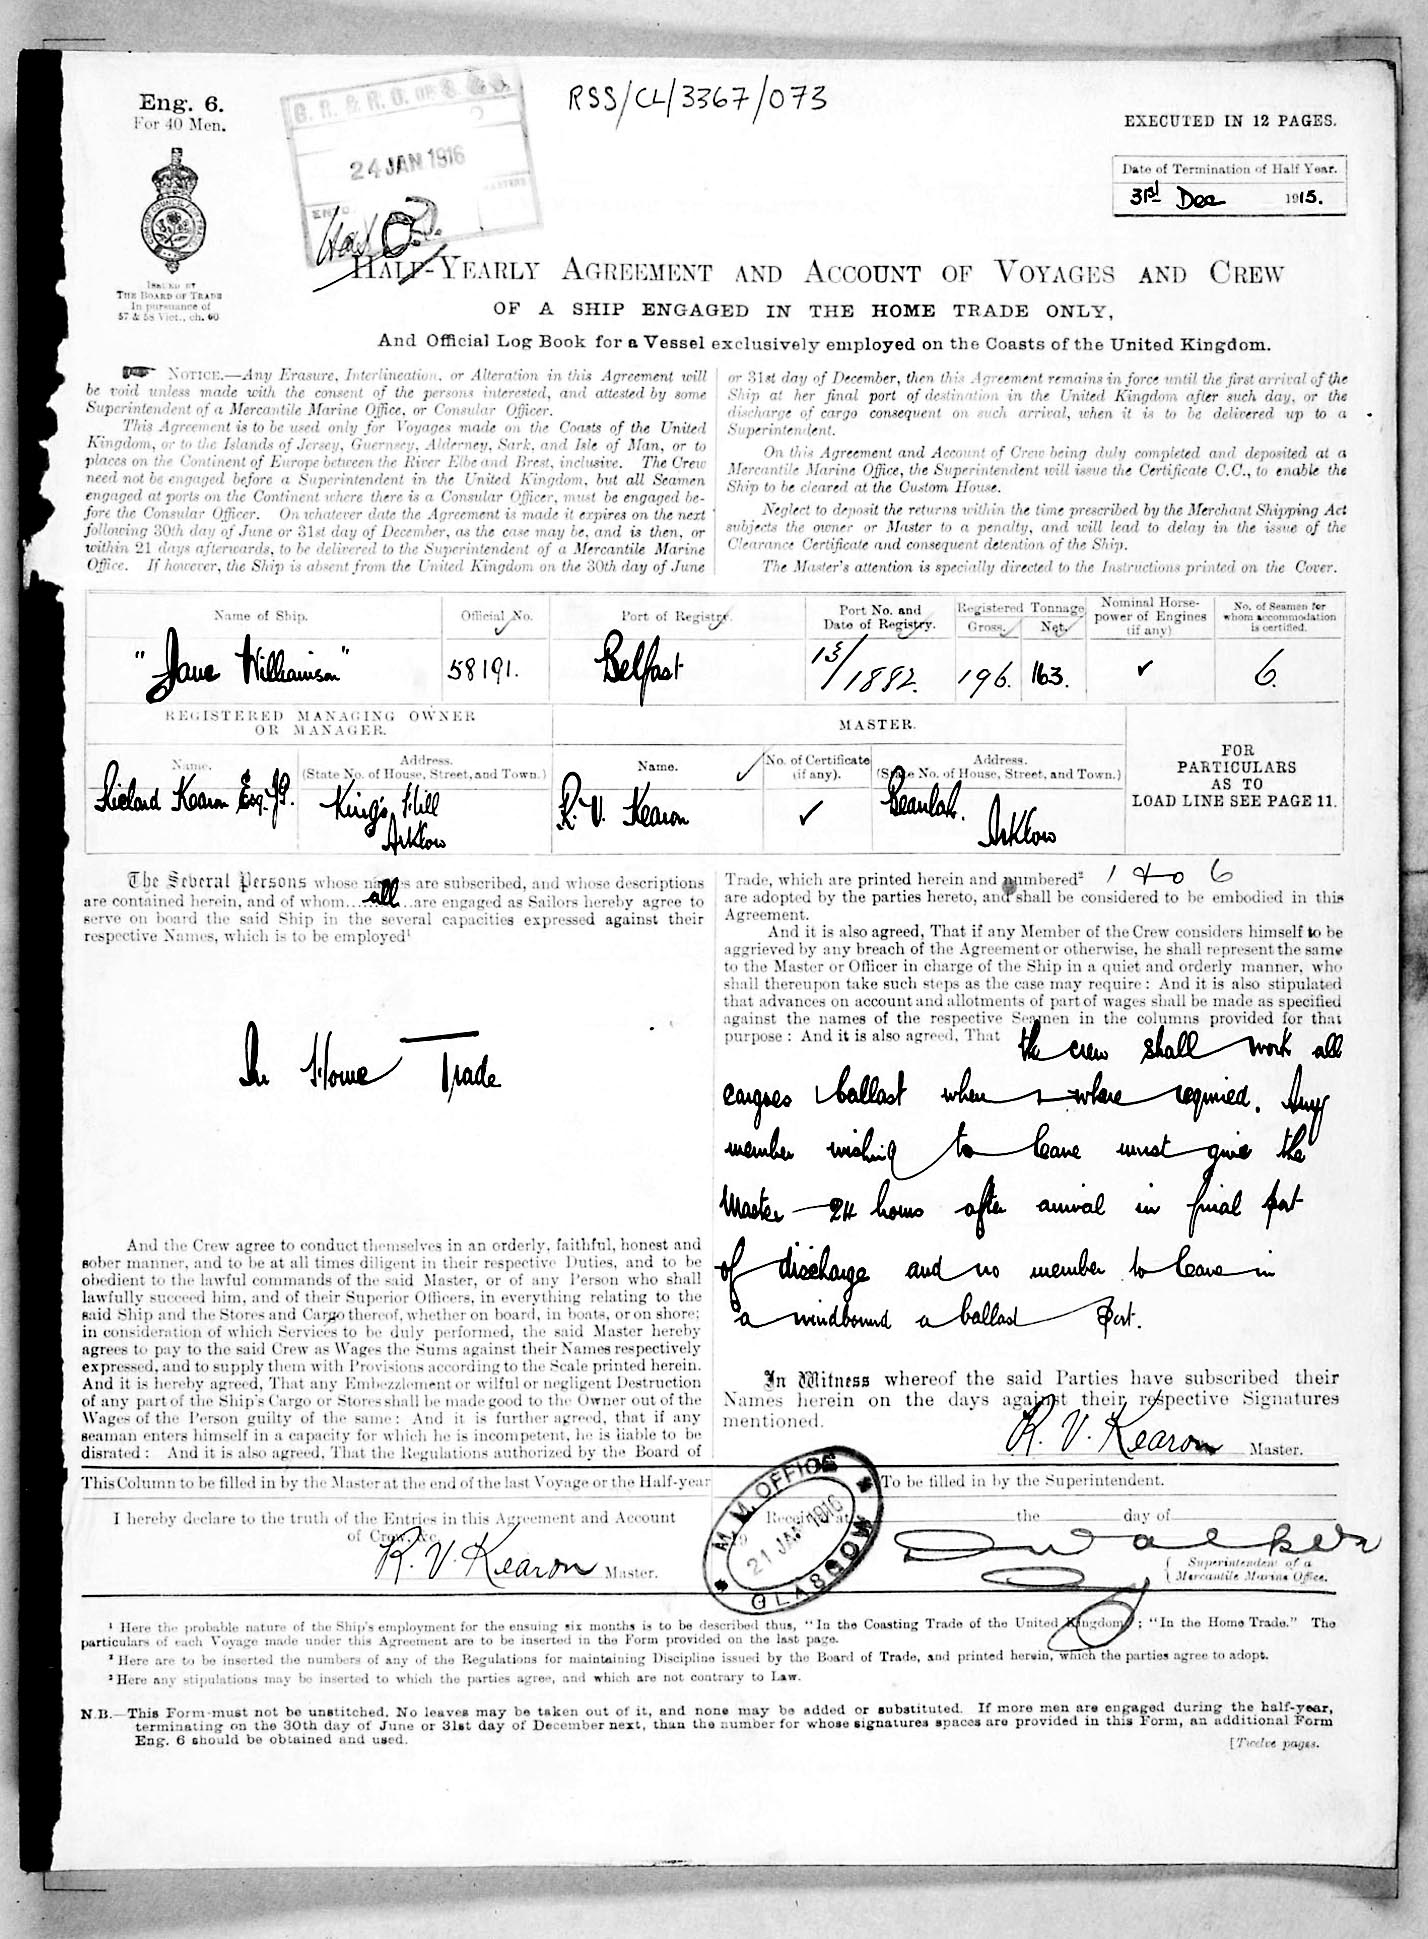 RSS/CL/3367/073
Eng. 6.
For 40 Men.
G. R. & R. O. OF S. & S.
24 JAN 1916
EXECUTED IN 12 PAGES.
Date of Termination of Half Year.
31st Dec 1915.
ISSUED BY
THE BOARD OF TRADE
In pursuance of
57 & 58 Vict., ch. 60
HALF-YEARLY AGREEMENT AND ACCOUNT OF VOYAGES AND CREW
OF A SHIP ENGAGED IN THE HOME TRADE ONLY,
And Official Log Book for a Vessel exclusively employed on the Coasts of the United Kingdom.
NOTICE.—Any Erasure, Interlineation, or Alteration in this Agreement will
be void unless made with the consent of the persons interested, and attested by some
Superintendent of a Mercantile Marine Office, or Consular Officer.
This Agreement is to be used only for Voyages made on the Coasts of the United
Kingdom, or to the Islands of Jersey, Guernsey, Alderney, Sark, and Isle of Man, or to
places on the Continent of Europe between the River Elbe and Brest, inclusive. The Crew
need not be engaged before a Superintendent in the United Kingdom, but all Seamen
engaged at ports on the Continent where there is a Consular Officer, must be engaged be-
fore the Consular Officer. On whatever date the Agreement is made it expires on the next
following 30th day of June or 31st day of December, as the case may be, and is then, or
within 21 days afterwards, to be delivered to the Superintendent of a Mercantile Marine
Office. If however, the Ship is absent from the United Kingdom on the 30th day of June
or 31st day of December, then this Agreement remains in force until the first arrival of the
Ship at her final port of destination in the United Kingdom after such day, or the
discharge of cargo consequent on such arrival, when it is to be delivered up to a
Superintendent.
On this Agreement and Account of Crew being duly completed and deposited at a
Mercantile Marine Office, the Superintendent will issue the Certificate C.C., to enable the
Ship to be cleared at the Custom House.
Neglect to deposit the returns within the time prescribed by the Merchant Shipping Act
subjects the owner or Master to a penalty, and will lead to delay in the issue of the
Clearance Certificate and consequent detention of the Ship.
The Master's attention is specially directed to the Instructions printed on the Cover.
Name of Ship. Official No. Port of Registry. Port No. and Date of Registry. Registered Tonnage Gross. Net. Nominal Horse-power of Engines (if any) No. of Seamen for whom accommodation is certified.
"Jane Williamson" 58191. Belfast 13/1882. 196. 163. ✓ 6.
REGISTERED MANAGING OWNER
OR MANAGER.
MASTER.
Name. Address. (State No. of House, Street, and Town.) Name. No. of Certificate (if any). Address. (State No. of House, Street, and Town.)
Richard Kearon Esq. J.P. King's Hill Arklow R. V. Kearon ✓ Beaulah. Arklow
FOR
PARTICULARS
AS TO
LOAD LINE SEE PAGE 11.
The Several Persons whose names are subscribed, and whose descriptions
are contained herein, and of whom...all...are engaged as Sailors hereby agree to
serve on board the said Ship in the several capacities expressed against their
respective Names, which is to be employed¹
In Home Trade
And the Crew agree to conduct themselves in an orderly, faithful, honest and
sober manner, and to be at all times diligent in their respective Duties, and to be
obedient to the lawful commands of the said Master, or of any Person who shall
lawfully succeed him, and of their Superior Officers, in everything relating to the
said Ship and the Stores and Cargo thereof, whether on board, in boats, or on shore;
in consideration of which Services to be duly performed, the said Master hereby
agrees to pay to the said Crew as Wages the Sums against their Names respectively
expressed, and to supply them with Provisions according to the Scale printed herein.
And it is hereby agreed, That any Embezzlement or wilful or negligent Destruction
of any part of the Ship's Cargo or Stores shall be made good to the Owner out of the
Wages of the Person guilty of the same: And it is further agreed, that if any
seaman enters himself in a capacity for which he is incompetent, he is liable to be
disrated: And it is also agreed, That the Regulations authorized by the Board of
Trade, which are printed herein and numbered² 1 to 6
are adopted by the parties hereto, and shall be considered to be embodied in this
Agreement.
And it is also agreed, That if any Member of the Crew considers himself to be
aggrieved by any breach of the Agreement or otherwise, he shall represent the same
to the Master or Officer in charge of the Ship in a quiet and orderly manner, who
shall thereupon take such steps as the case may require: And it is also stipulated
that advances on account and allotments of part of wages shall be made as specified
against the names of the respective Seamen in the columns provided for that
purpose: And it is also agreed, That the crew shall work all
cargoes & ballast when & where required. Any
member wishing to leave must give the
Master 24 hours after arrival in final port
of discharge and no member to leave in
a windbound a ballast Port.
In Witness whereof the said Parties have subscribed their
Names herein on the days against their respective Signatures
mentioned.
R. V. Kearon Master.
This Column to be filled in by the Master at the end of the last Voyage or the Half-year
I hereby declare to the truth of the Entries in this Agreement and Account
of Crew, &c.
R. V. Kearon Master.
M. M. OFFICE
21 JAN 1916
GLASGOW
To be filled in by the Superintendent.
Received at the day of
Walker
Superintendent of a
Mercantile Marine Office.
¹ Here the probable nature of the Ship's employment for the ensuing six months is to be described thus, "In the Coasting Trade of the United Kingdom"; "In the Home Trade." The
particulars of each Voyage made under this Agreement are to be inserted in the Form provided on the last page.
² Here are to be inserted the numbers of any of the Regulations for maintaining Discipline issued by the Board of Trade, and printed herein, which the parties agree to adopt.
³ Here any stipulations may be inserted to which the parties agree, and which are not contrary to Law.
N.B.—This Form must not be unstitched. No leaves may be taken out of it, and none may be added or substituted. If more men are engaged during the half-year,
terminating on the 30th day of June or 31st day of December next, than the number for whose signatures spaces are provided in this Form, an additional Form
Eng. 6 should be obtained and used.
[Twelve pages.